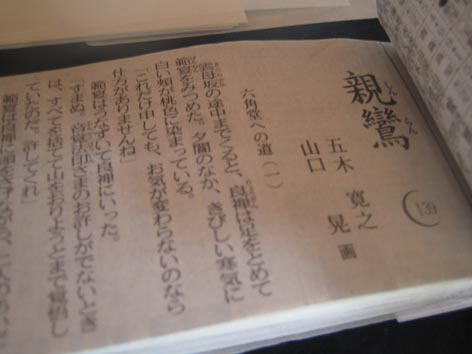 親鸞
しん らん
139
五木 寛之
山口 晃 画
六角堂への道(一)
雲母坂の途中までくると、良禅は足をとめて
範宴をみつめた。夕闇のなか、きびしい寒気に
白い頬が桃色に染まっている。
「これだけ申しても、お気が変わらないのなら
仕方がありませんね」
範宴はうなずいて良禅にいった。
「すまぬ。音覚法印さまのお許しがでないとき
は、すべてを捨てて山をおりようとまで覚悟し
ていたのだ。許してくれ」